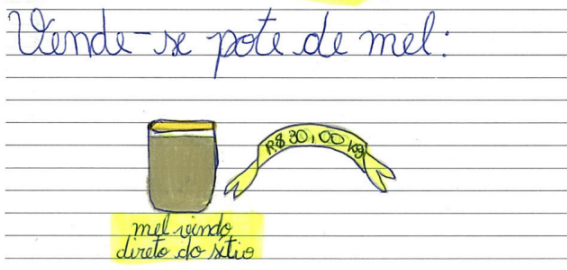 Vende-se pote de mel:
R$ 30,00 kg
mel vindo
direto do sítio